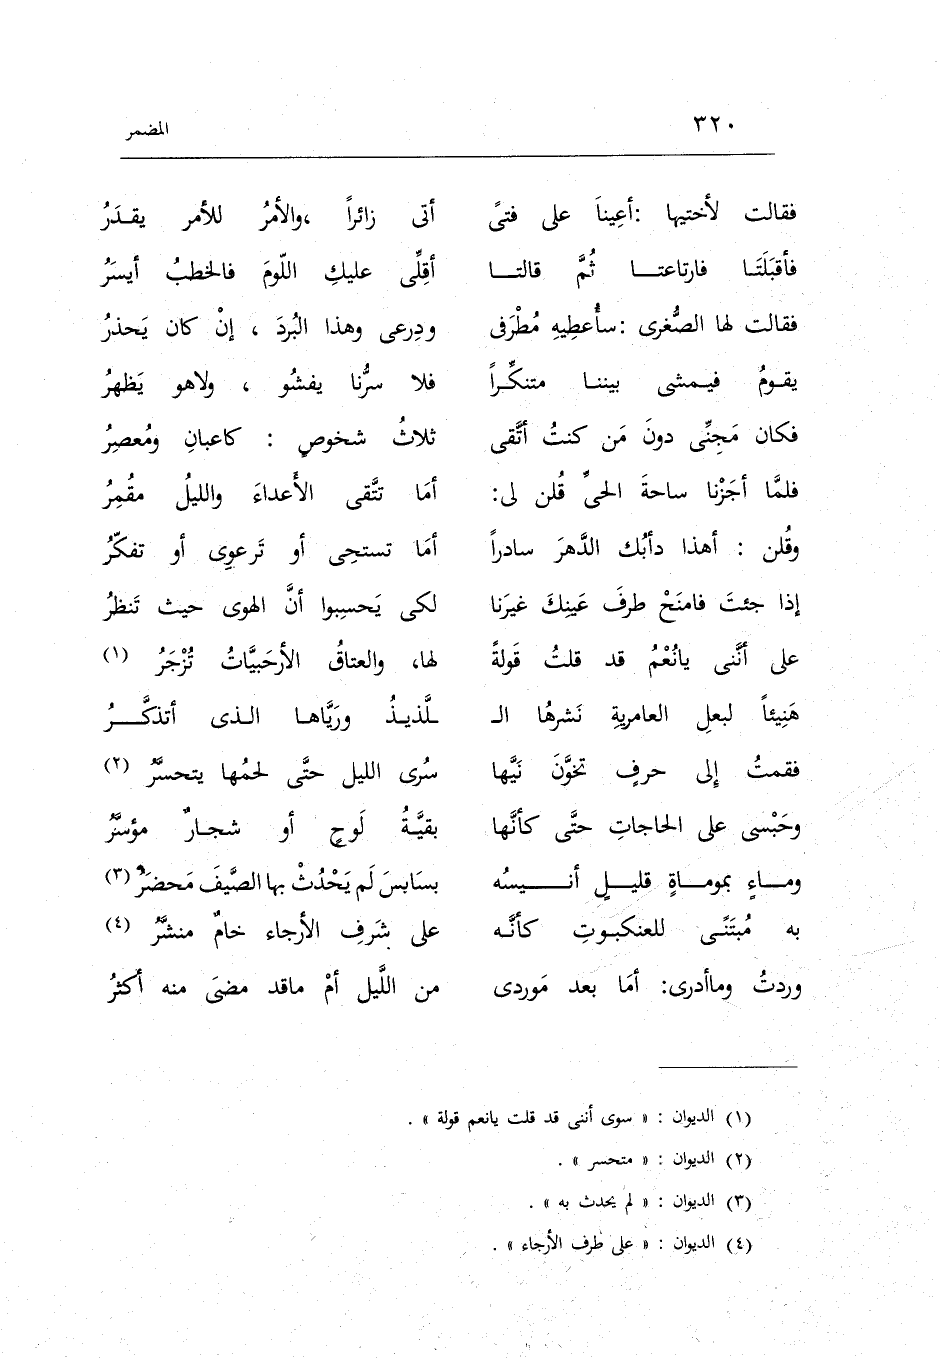 ٣٢٠ المضمر
فقالت لأختيها :أعِيناَ على فتىً أتى زائراً ،والأمرُ للأمر يقـدَرُ
فأقبَلَتَـا فارتاعتـــا ثُمَّ قالتـــا أقِلِّى عليكِ اللّومَ فالخطبُ أيسَرُ
فقالت لها الصُّغرى :سأُعطِيهِ مُطْرَفى ودِرعى وهذا البُردَ ، إنْ كان يَحذرُ
يقـومُ فيـمشى بيننـا متنكِّـراً فلا سرُّنا يفشُو ، ولاهو يَظهرُ
فكان مَجِنِّى دونَ مَن كنتُ أتَّقى ثلاثُ شخوصٍ : كاعبانِ ومُعصِرُ
فلمَّا أجَزْنا ساحةَ الحىِّ قُلن لى: أمَا تتَّقى الأَعداءَ والليلُ مقُمِرُ
وقُلن : أهذا دأبُك الدَّهرَ سادراً أمَا تستحِى أو تَرعوِى أو تفكّرُ
إذا جئتَ فامنَحْ طرفَ عَينِكَ غيرَنا لكى يَحسِبوا أنَّ الهوى حيث تَنظرُ
على أنَّنى يانُعْمُ قد قلتُ قَولةً لها، والعتاقُ الأرحَبيَّاتُ تُزْجَرُ (١)
هَنِيئاً لبعلِ العامريةِ نَشرهُا الـ ـلَّذيـذُ ورَيَّاهـا الـذى أتذكَّـــرُ
فقمتُ إلى حرفٍ تخوَّنَ نَيَّها سُرى الليل حتَّى لحمُها يتحسَّرُ (٢)
وحَبْسى على الحاجاتِ حتَّى كأنَّها بقيَّـةُ لَوحٍ أو شجـارٌ مؤسَّرُ
ومـــاءٍ بموماةٍ قليـــلٍ أنـــيسُه بسَابسَ لَم يَحْدُثْ بها الصَّيفَ مَحضرُ (٣)
به مُبتَنًـى للعنكبـوتِ كأنَّـه على شَرَفِ الأرجاء خامٌ منشَّرُ (٤)
وردتُ وماأدرى: أمَا بعد مَوردى من اللَّيل أمْ ماقد مضىَ منه أكثرُ
(١) الديوان : « سوى أننى قد قلت يانعم قولة » .
(٢) الديوان : « متحسر » .
(٣) الديوان : « لم يحدث به » .
(٤) الديوان : « على طرف الأرجاء » .